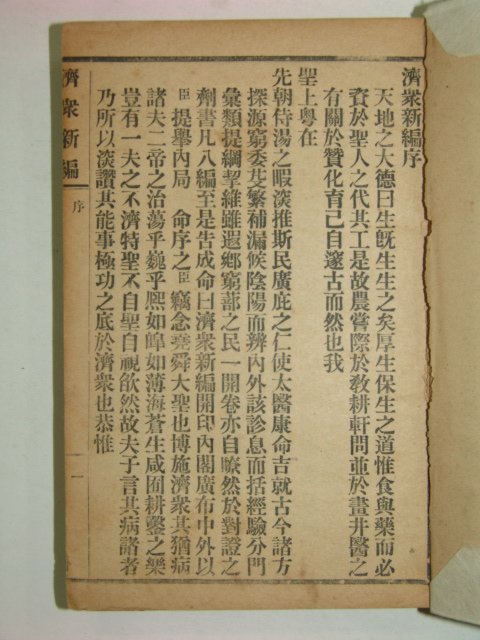 濟衆新編序
天地之大德曰生旣生生之矣厚生保生之道惟食與藥而必
資於聖人之代其工是故農嘗際於敎耕軒問並於畫井醫之
有關於贊化育已自邃古而然也我
聖上粤在
先朝侍湯之暇淡推斯民廣庇之仁使太醫康命吉就古今諸方
探源窮委芟繁補漏候陰陽而辨內外該診息而括經驗分門
彙類提綱挈維雖遐鄉窮蔀之民一開卷亦自瞭然於對證之
劑書凡八編至是告成命曰濟衆新編開印內閣廣布中外以
臣提擧內局 命序之臣竊念堯舜大聖也博施濟衆其猶病
諸夫二帝之治蕩乎巍乎熙如皡如薄海蒼生咸囿耕鑿之樂
豈有一夫之不濟特聖不自聖自視欿然故夫子言其病諸者
乃所以淡讚其能事極功之底於濟衆也恭惟
濟衆新編 序 一